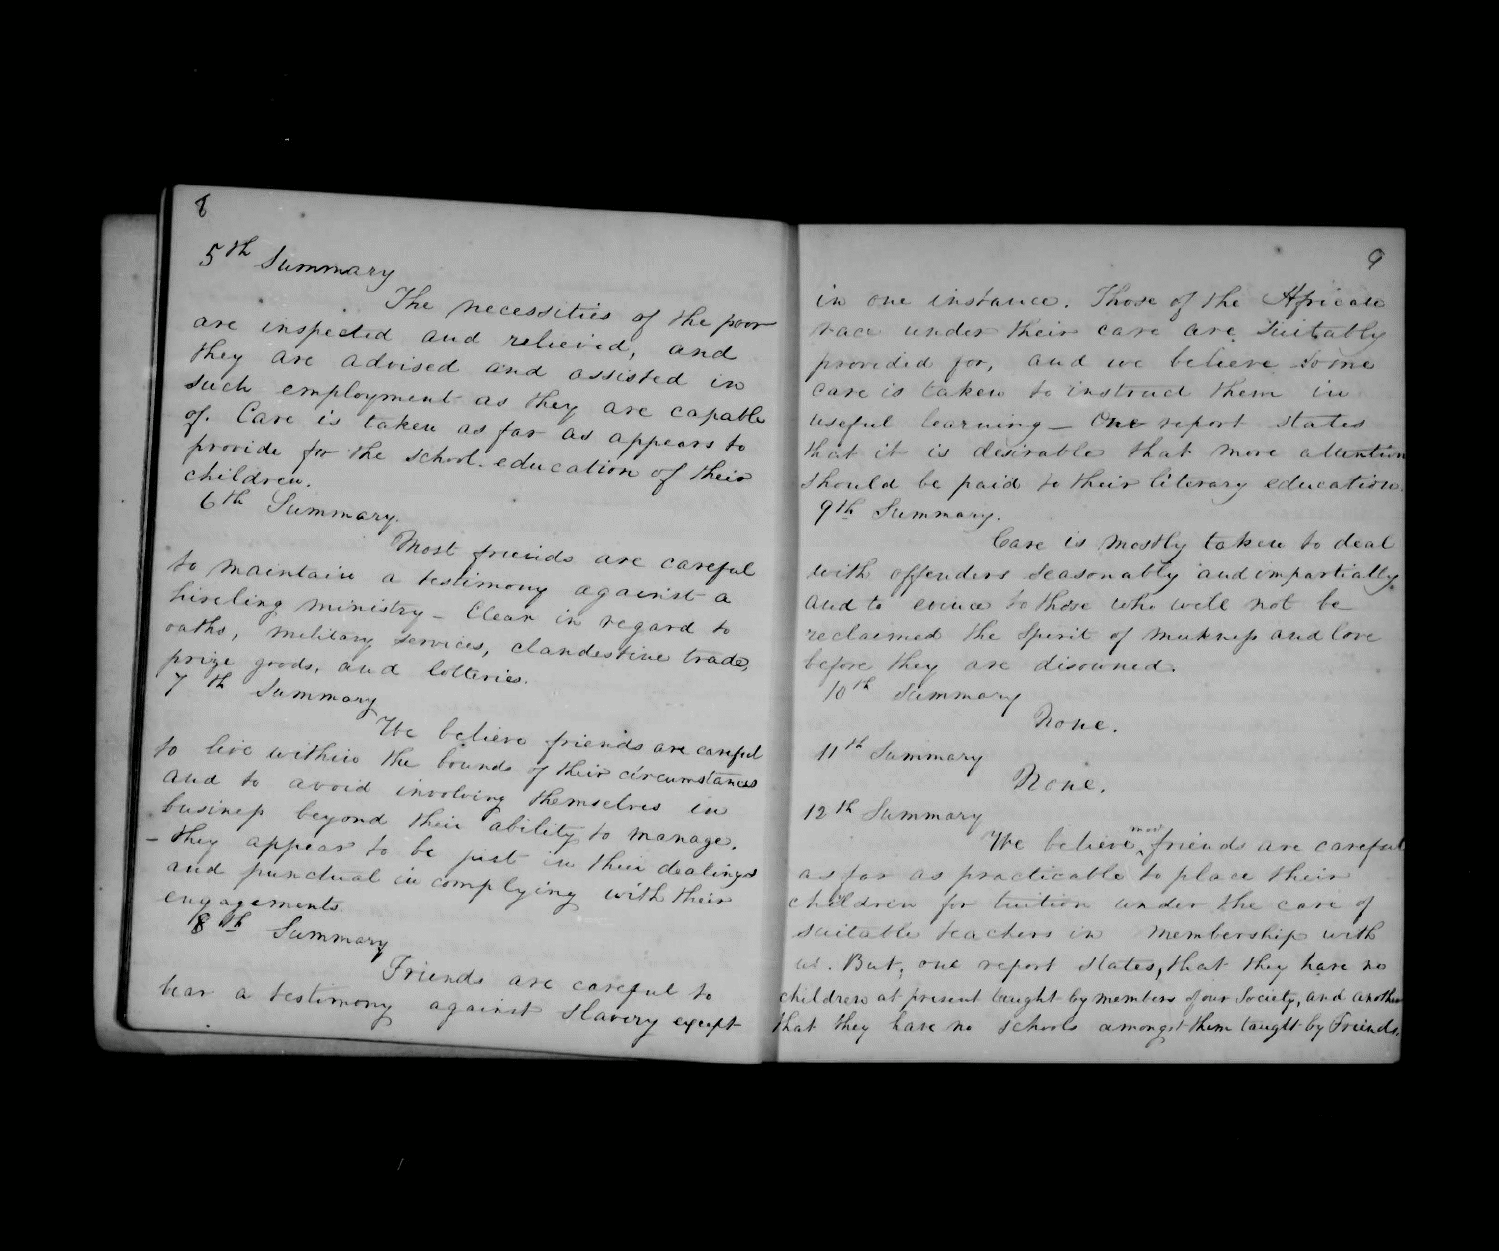 8
5th Summary
The necessities of the poor
are inspected and relieved, and
they are advised and assisted in
such employment as they are capable
of. Care is taken as far as appears to
provide for the school education of their
children.
6th Summary.
Most friends are careful
to maintain a testimony against a
hireling ministry – Clear in regard to
oaths, military services, clandestine trade,
prize goods, and lotteries.
7th Summary
We believe friends are careful
to live within the bounds of their circumstances
and to avoid involving themselves in
business beyond their ability to manage.
– they appear to be just in their dealings
and punctual in complying with their
engagements.
8th Summary
Friends are careful to
bear a testimony against slavery except
9
in one instance. Those of the African
race under their care are suitably
provided for, and we believe some
care is taken to instruct them in
useful learning – One report states
that it is desirable that more attention
should be paid to their literary education.
9th Summary.
Care is mostly taken to deal
with offenders seasonably and impartially.
and to evince to those who will not be
reclaimed the spirit of meekness and love
before they are disowned.
10th Summary
None.
11th Summary
None.
12th Summary
We believe most friends are careful
as far as practicable to place their
children for tuition under the care of
suitable teachers in membership with
us. But, one report states, that they have no
children at present taught by members of our Society, and another
that they have no schools amongst them taught by Friends.